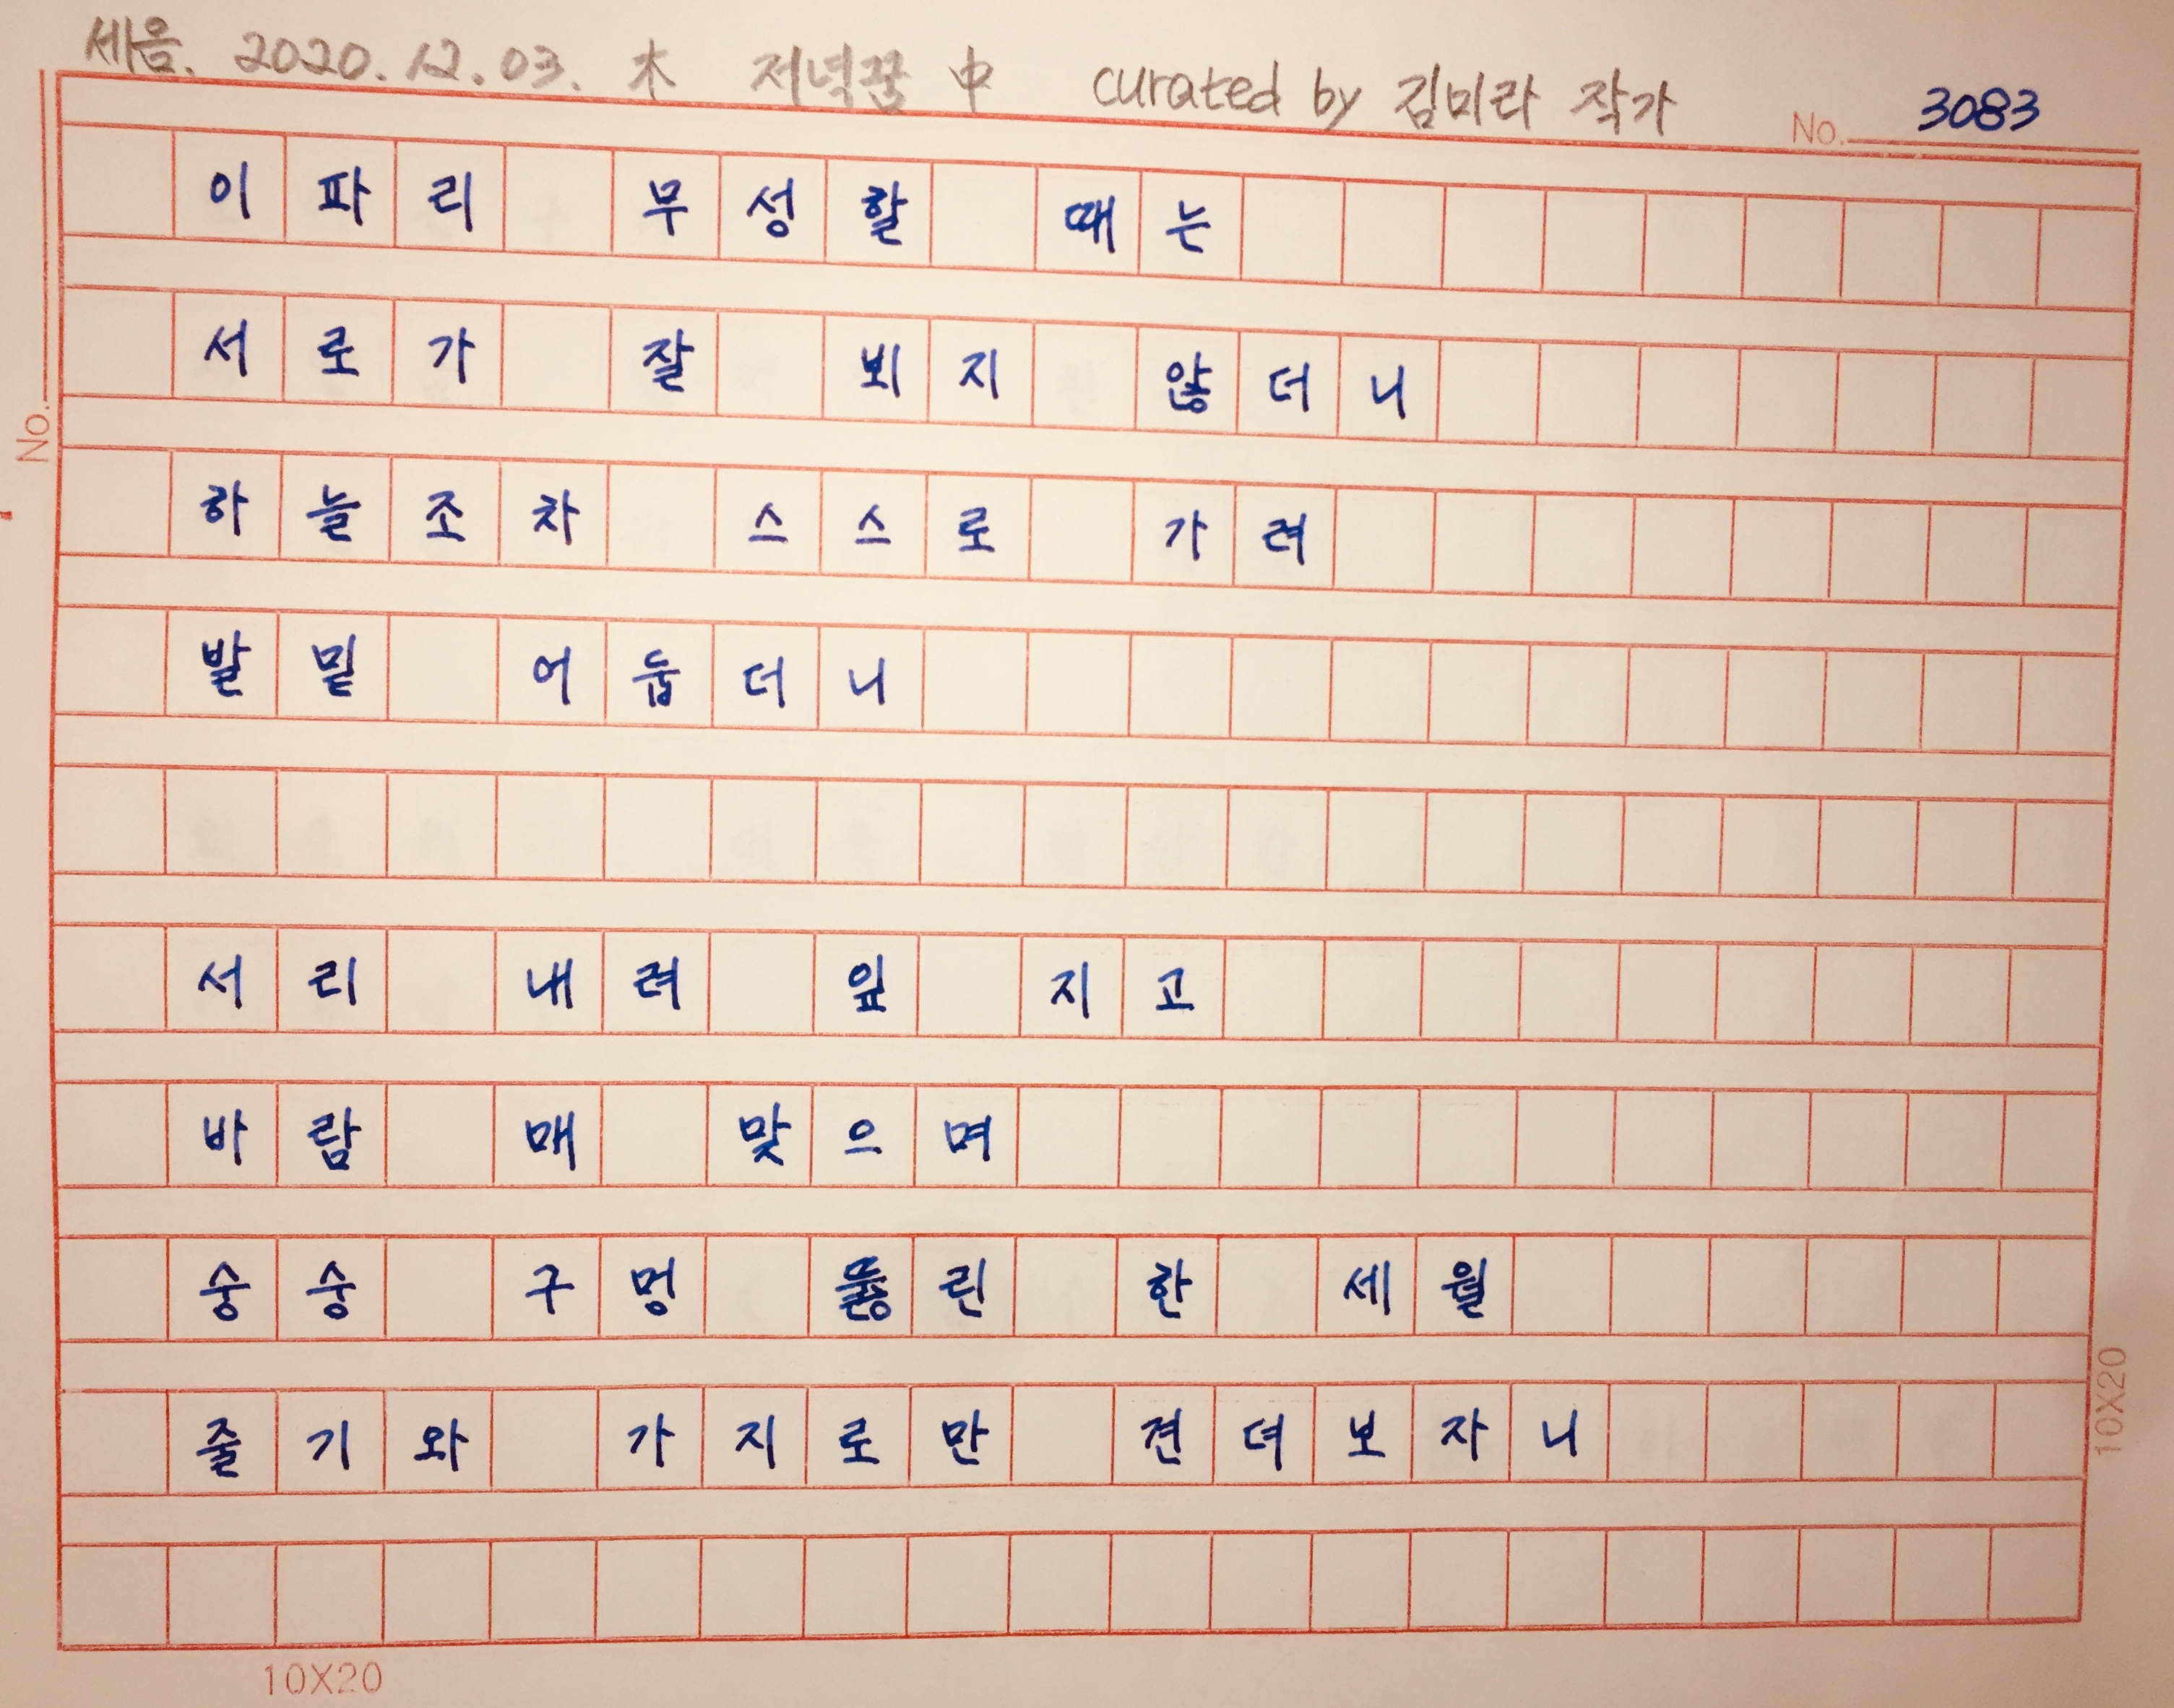 세음. 2020.12.03. 木 저녁꿈 中 curated by 김미라 작가
No. 3083
이파리 무성할 때는
서로가 잘 뵈지 않더니
하늘조차 스스로 가려
발밑 어둡더니
서리 내려 잎 지고
바람 매 맞으며
숭숭 구멍 뚫린 한 세월
줄기와 가지로만 견뎌보자니
No.
10X20
10X20